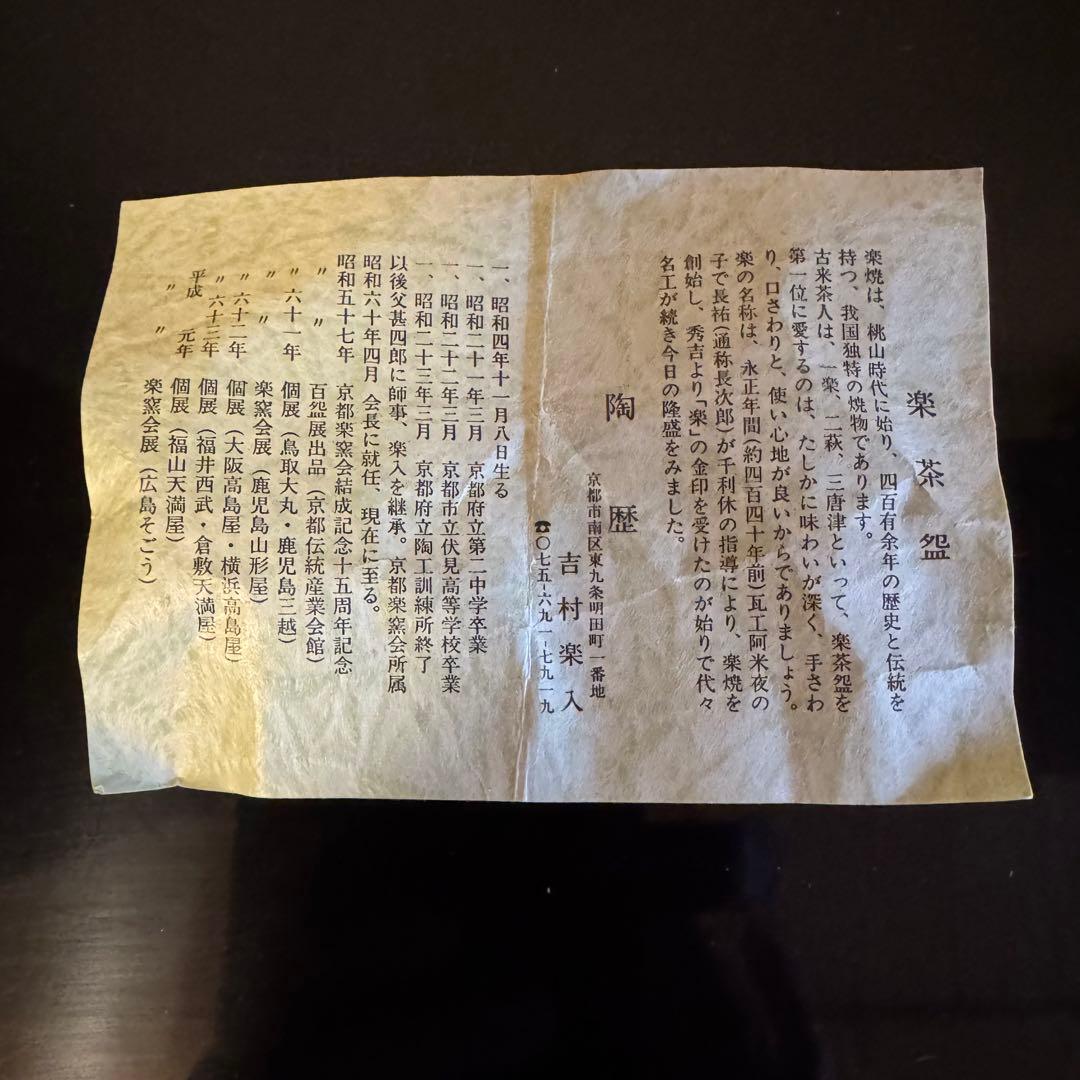 楽茶盌
楽焼は、桃山時代に始り、四百有余年の歴史と伝統を
持つ、我国独特の焼物であります。
古来茶人は、一楽、二萩、三唐津といって、楽茶盌を
第一位に愛するのは、たしかに味わいが深く、手さわ
り、口さわりと、使い心地が良いからでありましょう。
楽の名称は、永正年間(約四百四十年前)瓦工阿米夜の
子で長祐(通称長次郎)が千利休の指導により、楽焼を
創始し、秀吉より「楽」の金印を受けたのが始りで代々
名工が続き今日の隆盛をみました。
陶歴
京都市南区東九条明田町一番地
吉村楽入
☎〇七五-六九一-七九一九
一、昭和四年十一月八日生る
一、昭和二十一年三月 京都府立第二中学卒業
一、昭和二十二年三月 京都市立伏見高等学校卒業
一、昭和二十三年三月 京都府立陶工訓練所終了
以後父甚四郎に師事、楽入を継承。京都楽窯会所属
昭和六十年四月 会長に就任、現在に至る。
昭和五十七年 京都楽窯会結成記念十五周年記念
〃 〃 百盌展出品(京都伝統産業会館)
〃 六十一年 個展(鳥取大丸・鹿児島三越)
〃 〃 楽窯会展(鹿児島山形屋)
〃 六十二年 個展(大阪高島屋・横浜高島屋)
〃 六十三年 個展(福井西武・倉敷天満屋)
平成 元年 個展(福山天満屋)
〃 〃 楽窯会展(広島そごう)